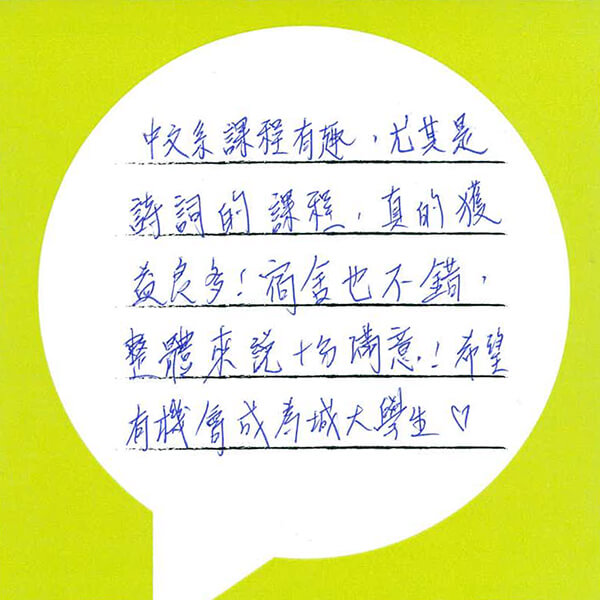 中文系課程有趣，尤其是
詩詞的課程，真的獲
益良多！宿舍也不錯，
整體來說十分滿意！希望
有機會成為城大學生♡